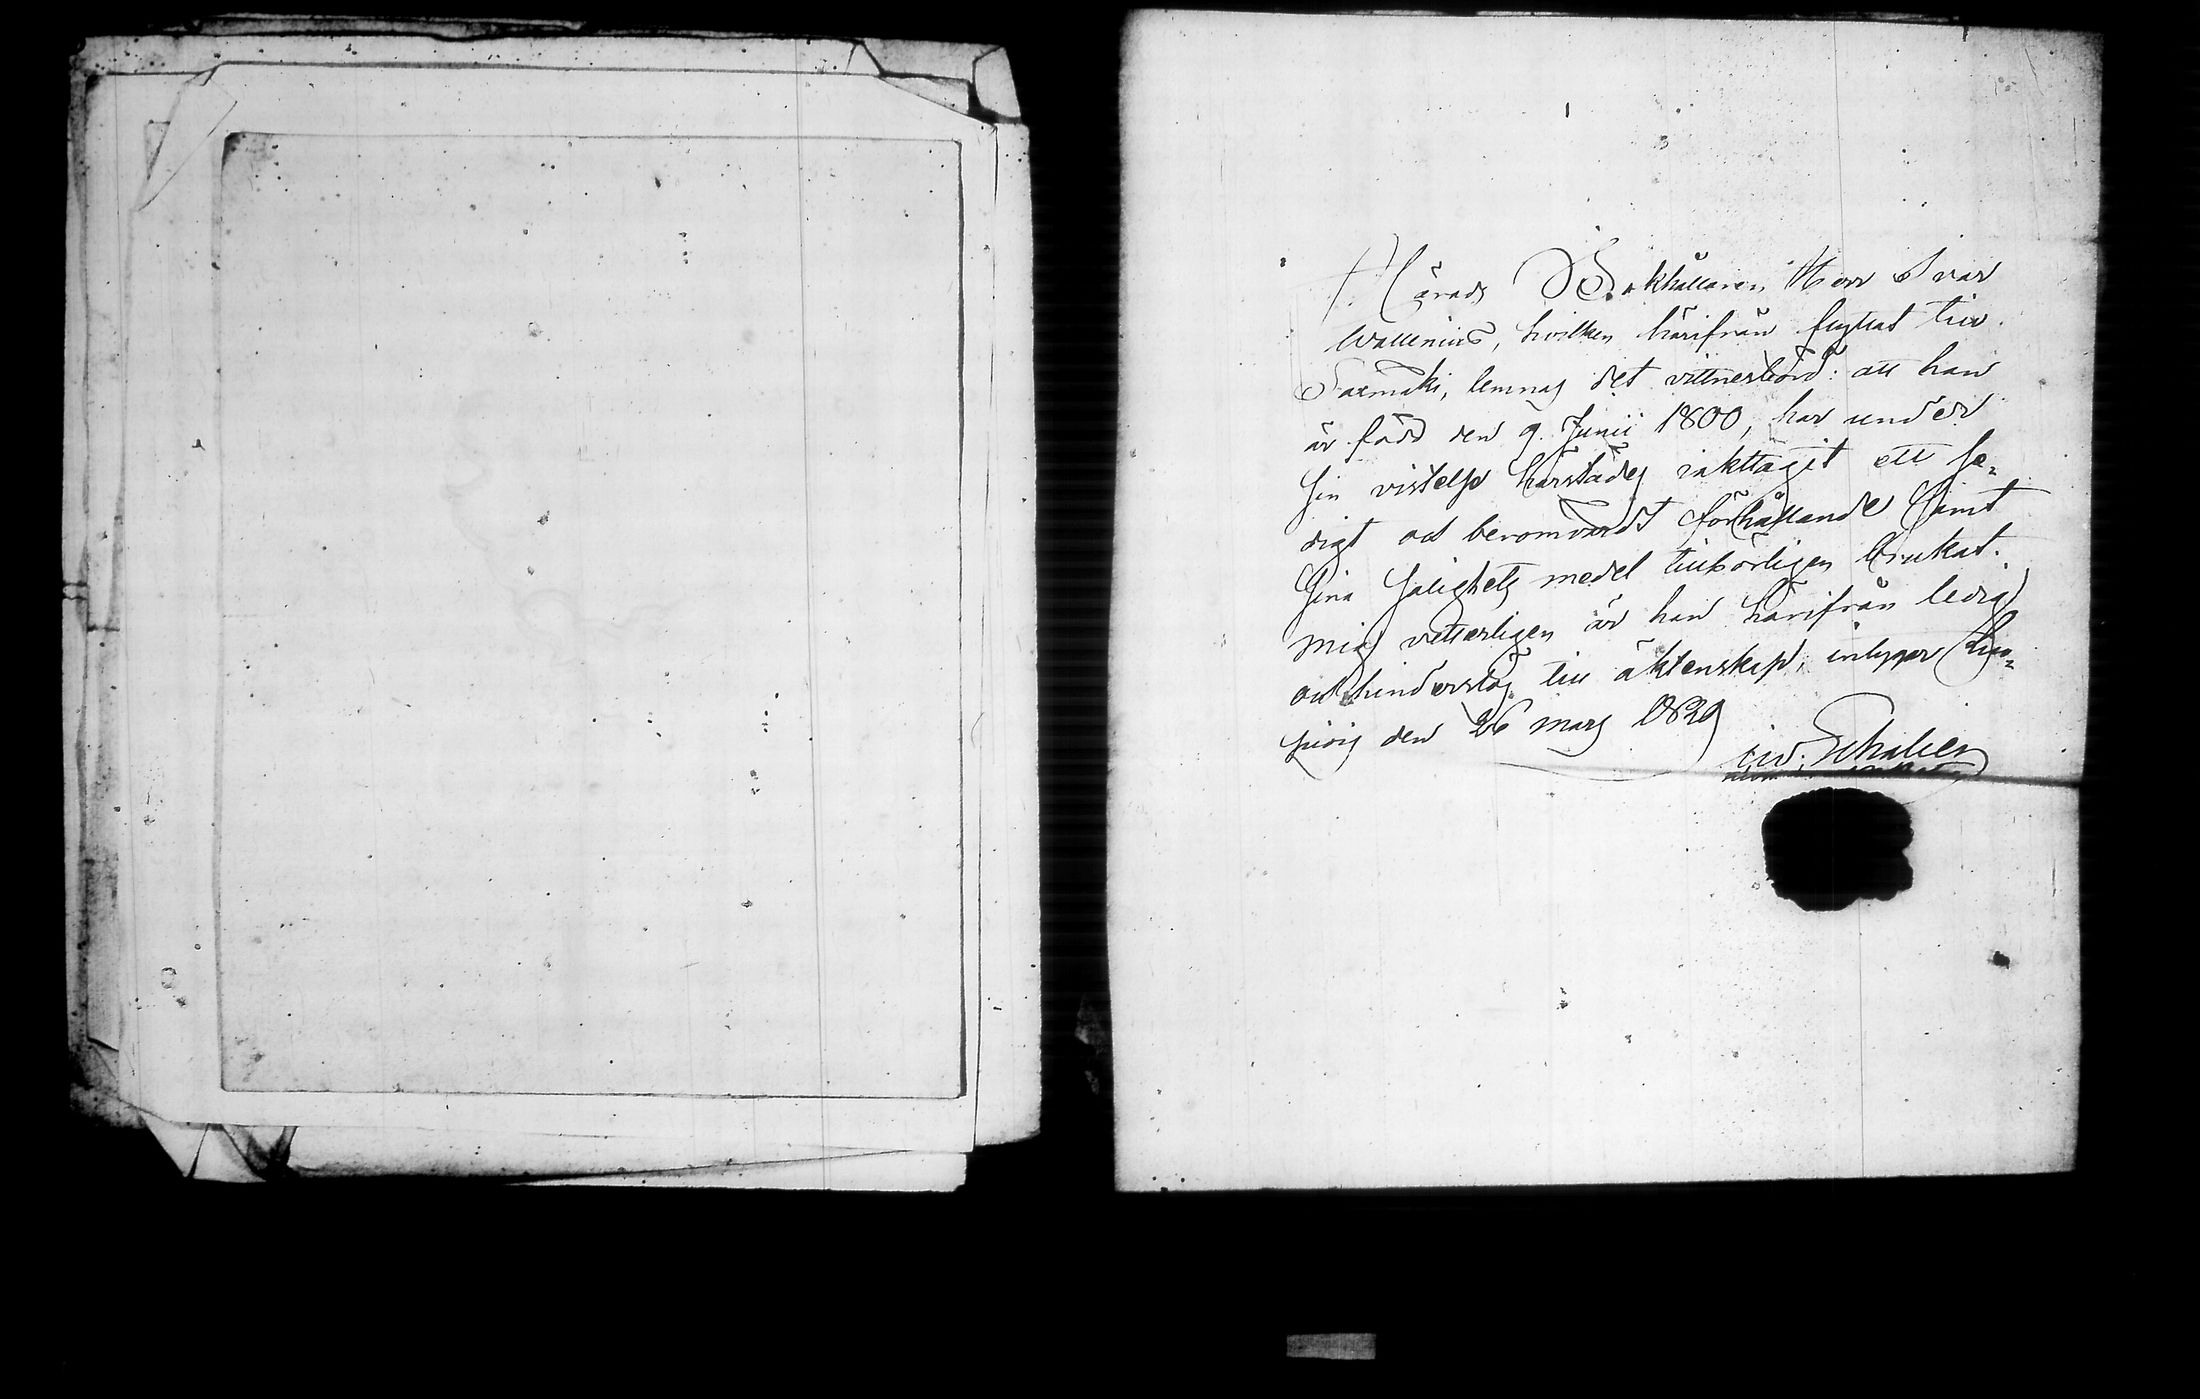 Härads Bokhållaren Herr Ivar
Wallenius, hvilken härifrån flyttat till
Saxmäki, lemnas det vittnesbörd: att han
är född den 9 Junii 1800, har under
sin vistelse härstädes iakttagit ett se-
digt och berömvärdt förhållande samt
sina salighets medel tillbörligen brukat.
Mig vetterligen är han härifrån ledig
och hinderslös till äktenskap, intygar
den 26 Mars 1829